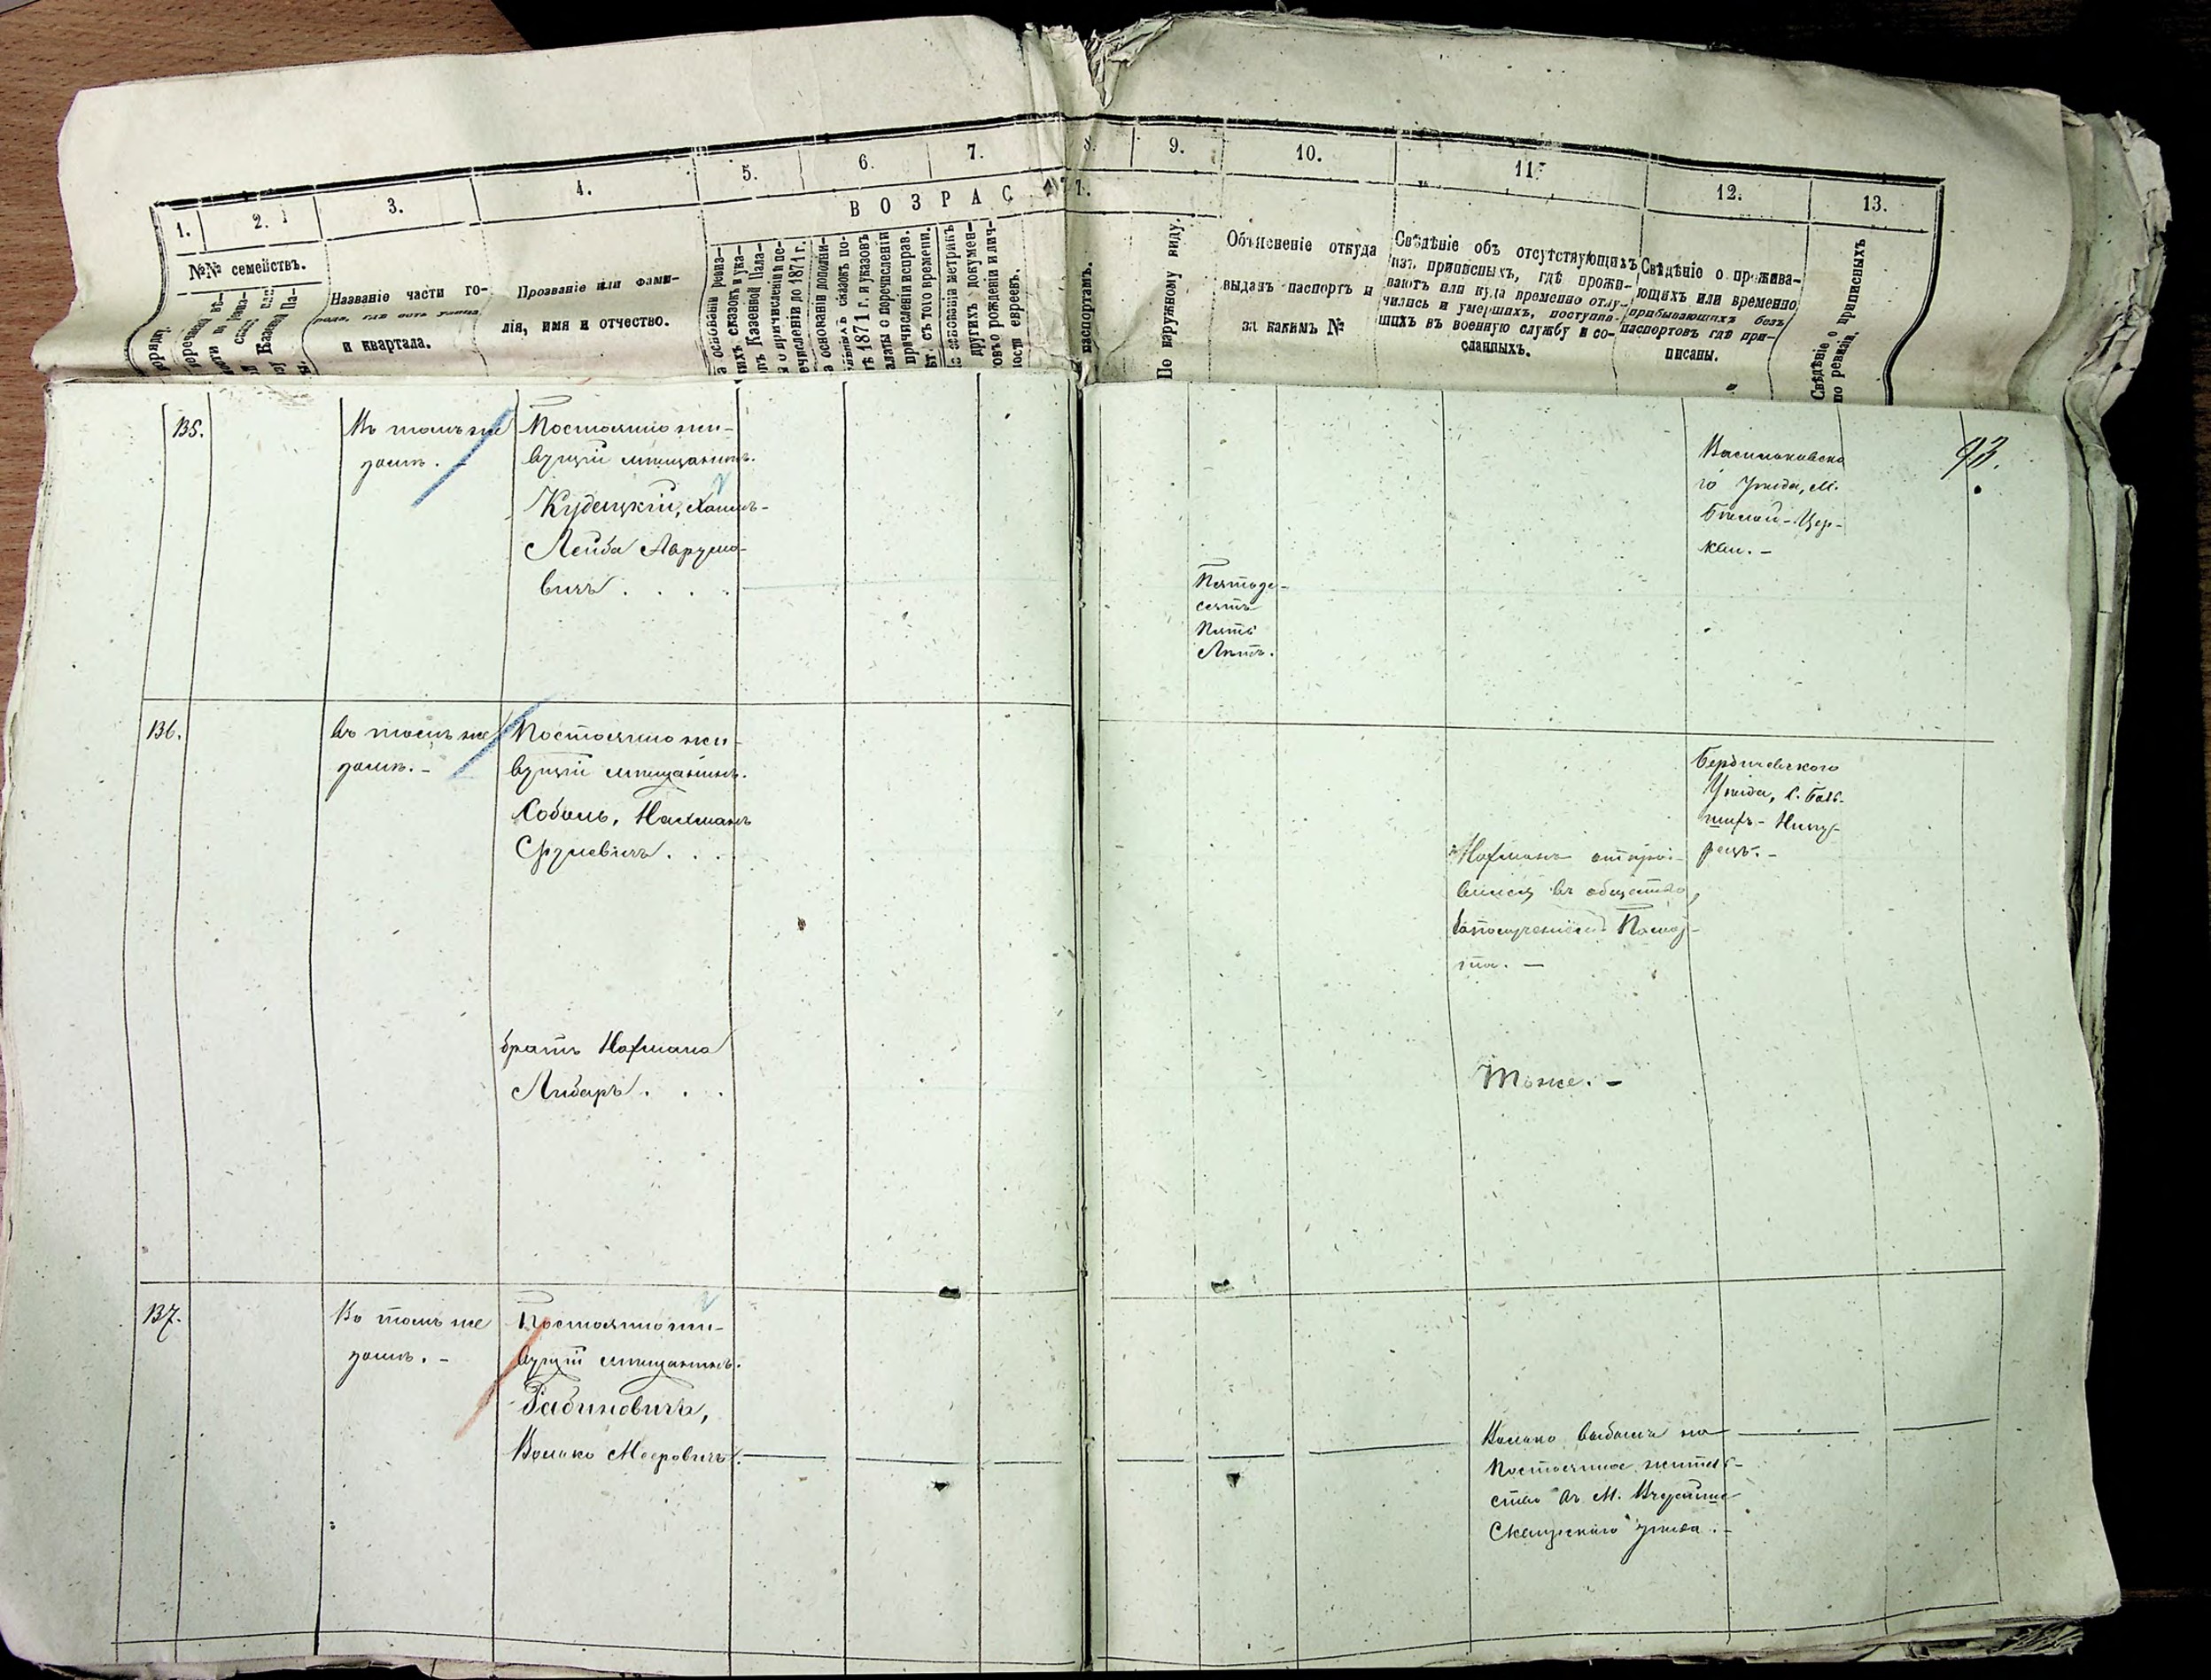 1. 2. 3. 4. 5. 6. 7. 8. 9. 10. 11. 12. 13.
ВОЗРАСТЪ.
№№ семействъ.
Названіе части го-
рода, гдѣ есть улица
и квартала.
Прозваніе или фами-
лія, имя и отчество.
По наружному виду.
Объясненіе откуда
выданъ паспортъ и
за какимъ №
Свѣдѣніе объ отсутствующихъ
изъ приписныхъ, гдѣ прожи-
ваютъ или куда временно отлу-
чились и умершихъ, поступив-
шихъ въ военную службу и со-
сланныхъ.
Свѣдѣніе о прожива-
ющихъ или временно
прибывающихъ безъ
паспортовъ гдѣ при-
писаны.
Свѣдѣніе о приписныхъ
по ревизіи.
135.
Въ томъ же
домѣ. –
Постоянно жи-
вущій мѣщанинъ.
Хаимъ-
Лейба Аврумо-
вичъ . . . .
Пятьде-
сятъ
пять
Лѣтъ.
Васильковска
го Уѣзда, М.
Бѣлой-Цер-
кви. –
93.
136.
Въ томъ же
домѣ. –
Постоянно жи-
вущій мѣщанинъ.
Соболь, Нахманъ
Срулевичъ . . .
Нахманъ
въ общество,
Бердичевского
Уѣзда,
братъ Нахмана
Либеръ . . .
Тоже. –
137.
Въ томъ же
домѣ. –
Постоянно жи-
вущій мѣщанинъ.
Рабиновичъ,
Волько Мееровичъ.
Волько выбылъ на
постоянное житель-
ство въ М.
Сквирскаго уѣзда. –